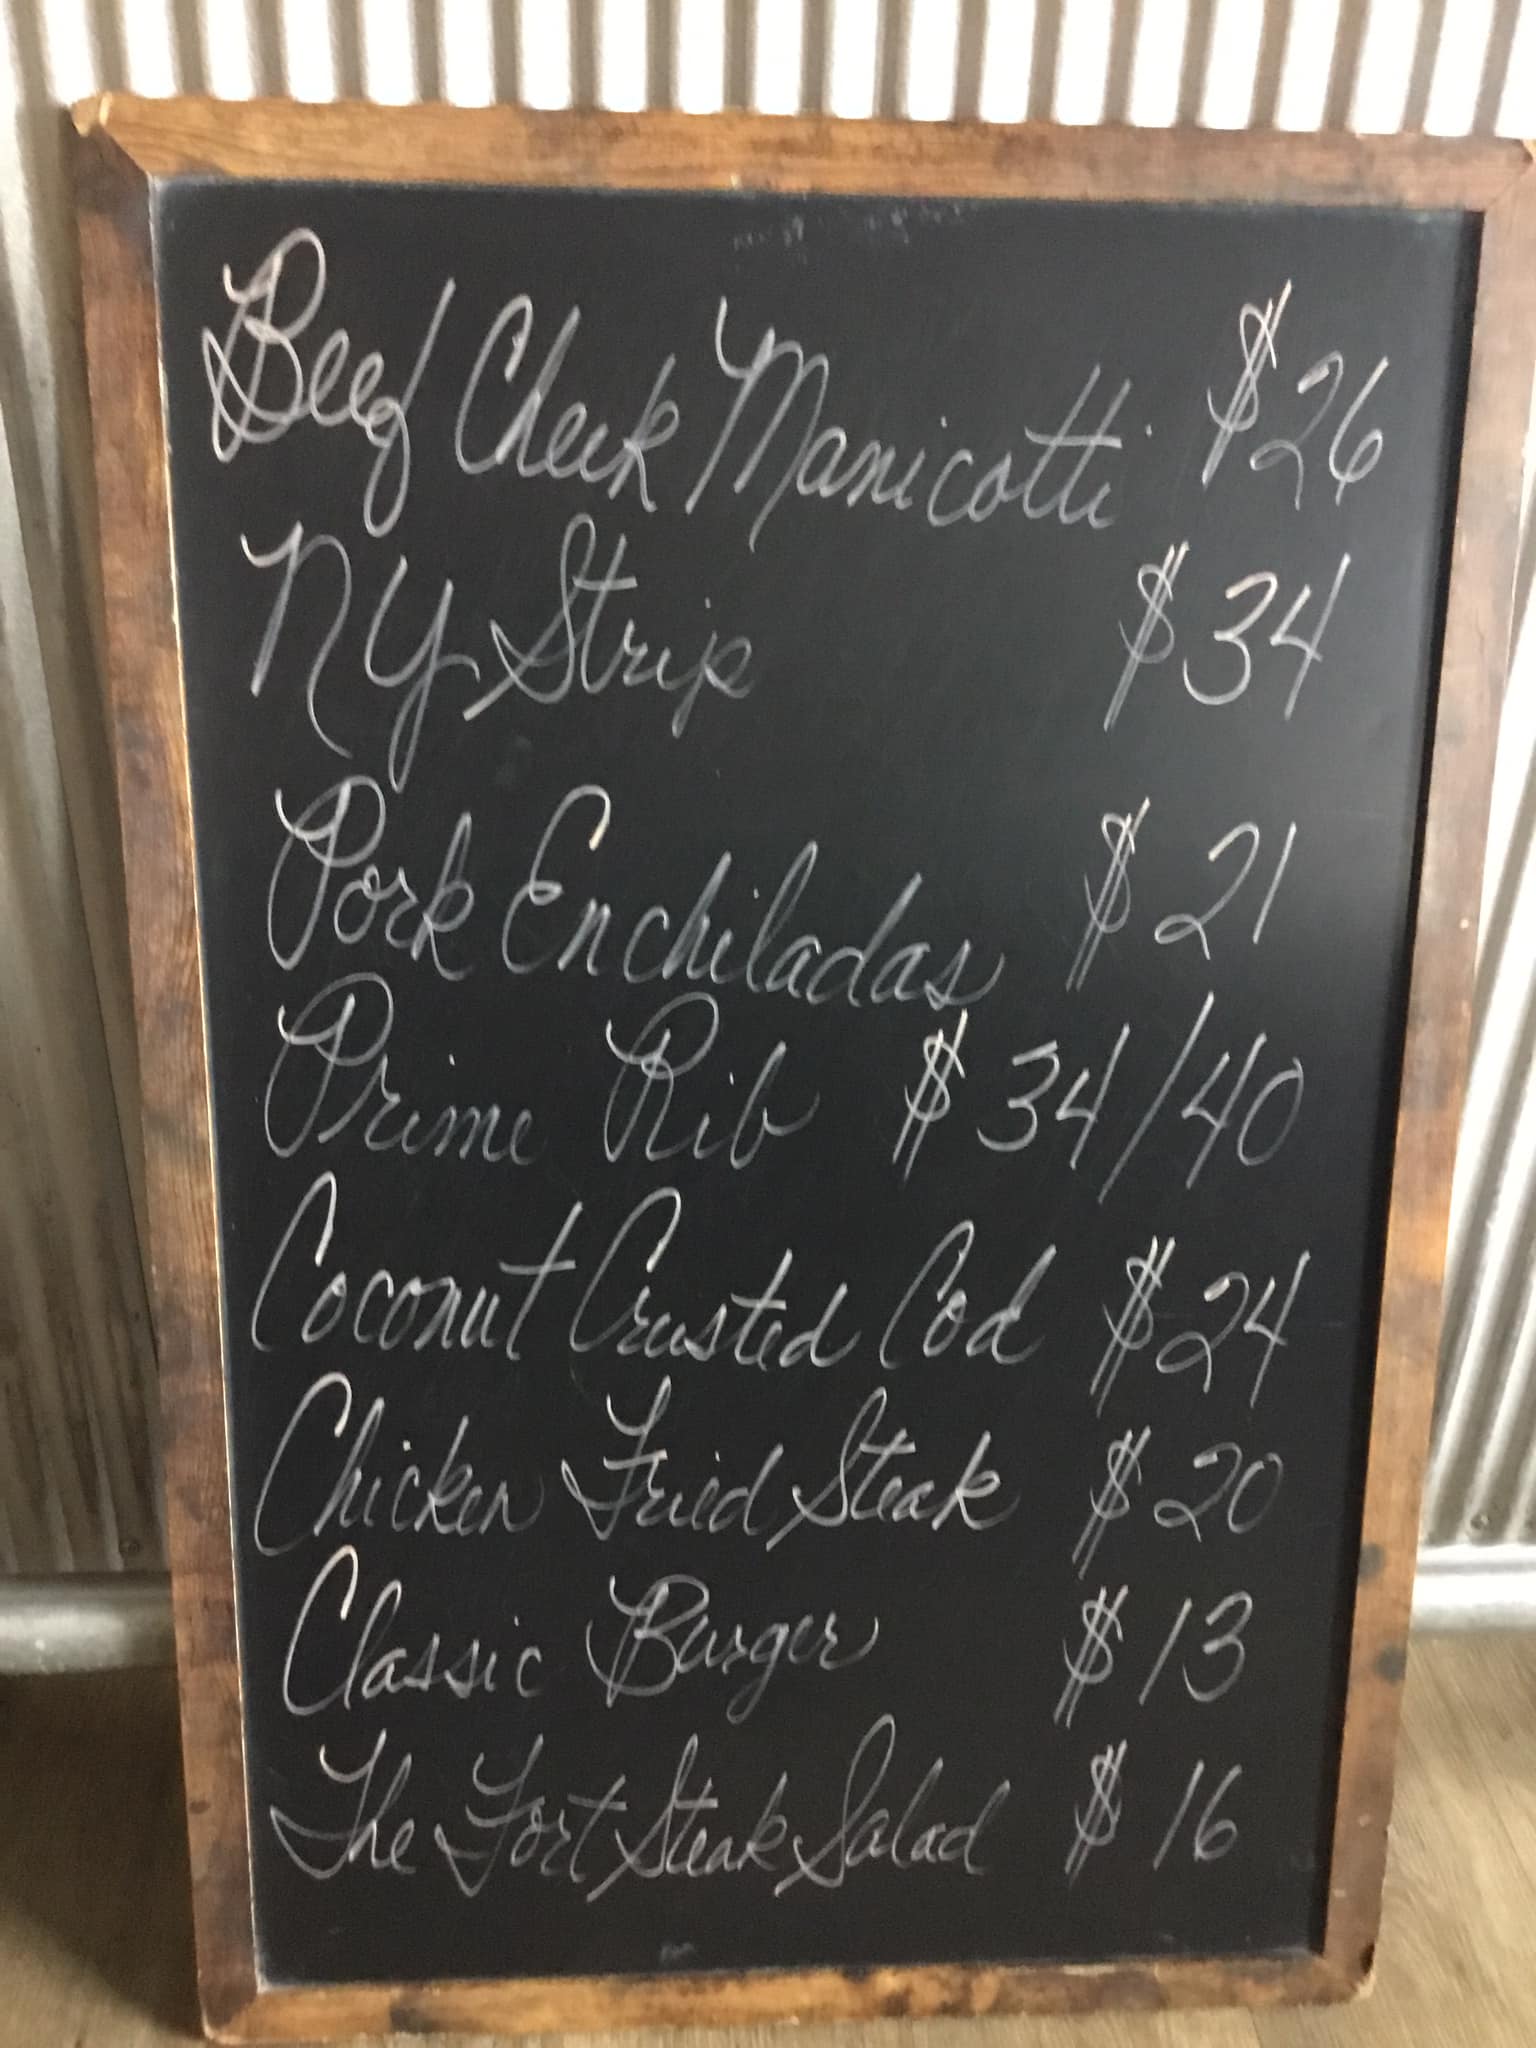 Beef Cheek Manicotti $26
NY Strip $34
Pork Enchiladas $21
Prime Rib $34/40
Coconut Crusted Cod $24
Chicken Fried Steak $20
Classic Burger $13
The Fort Steak Salad $16